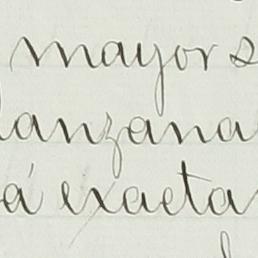 mayor s
lanzana
a' exacta